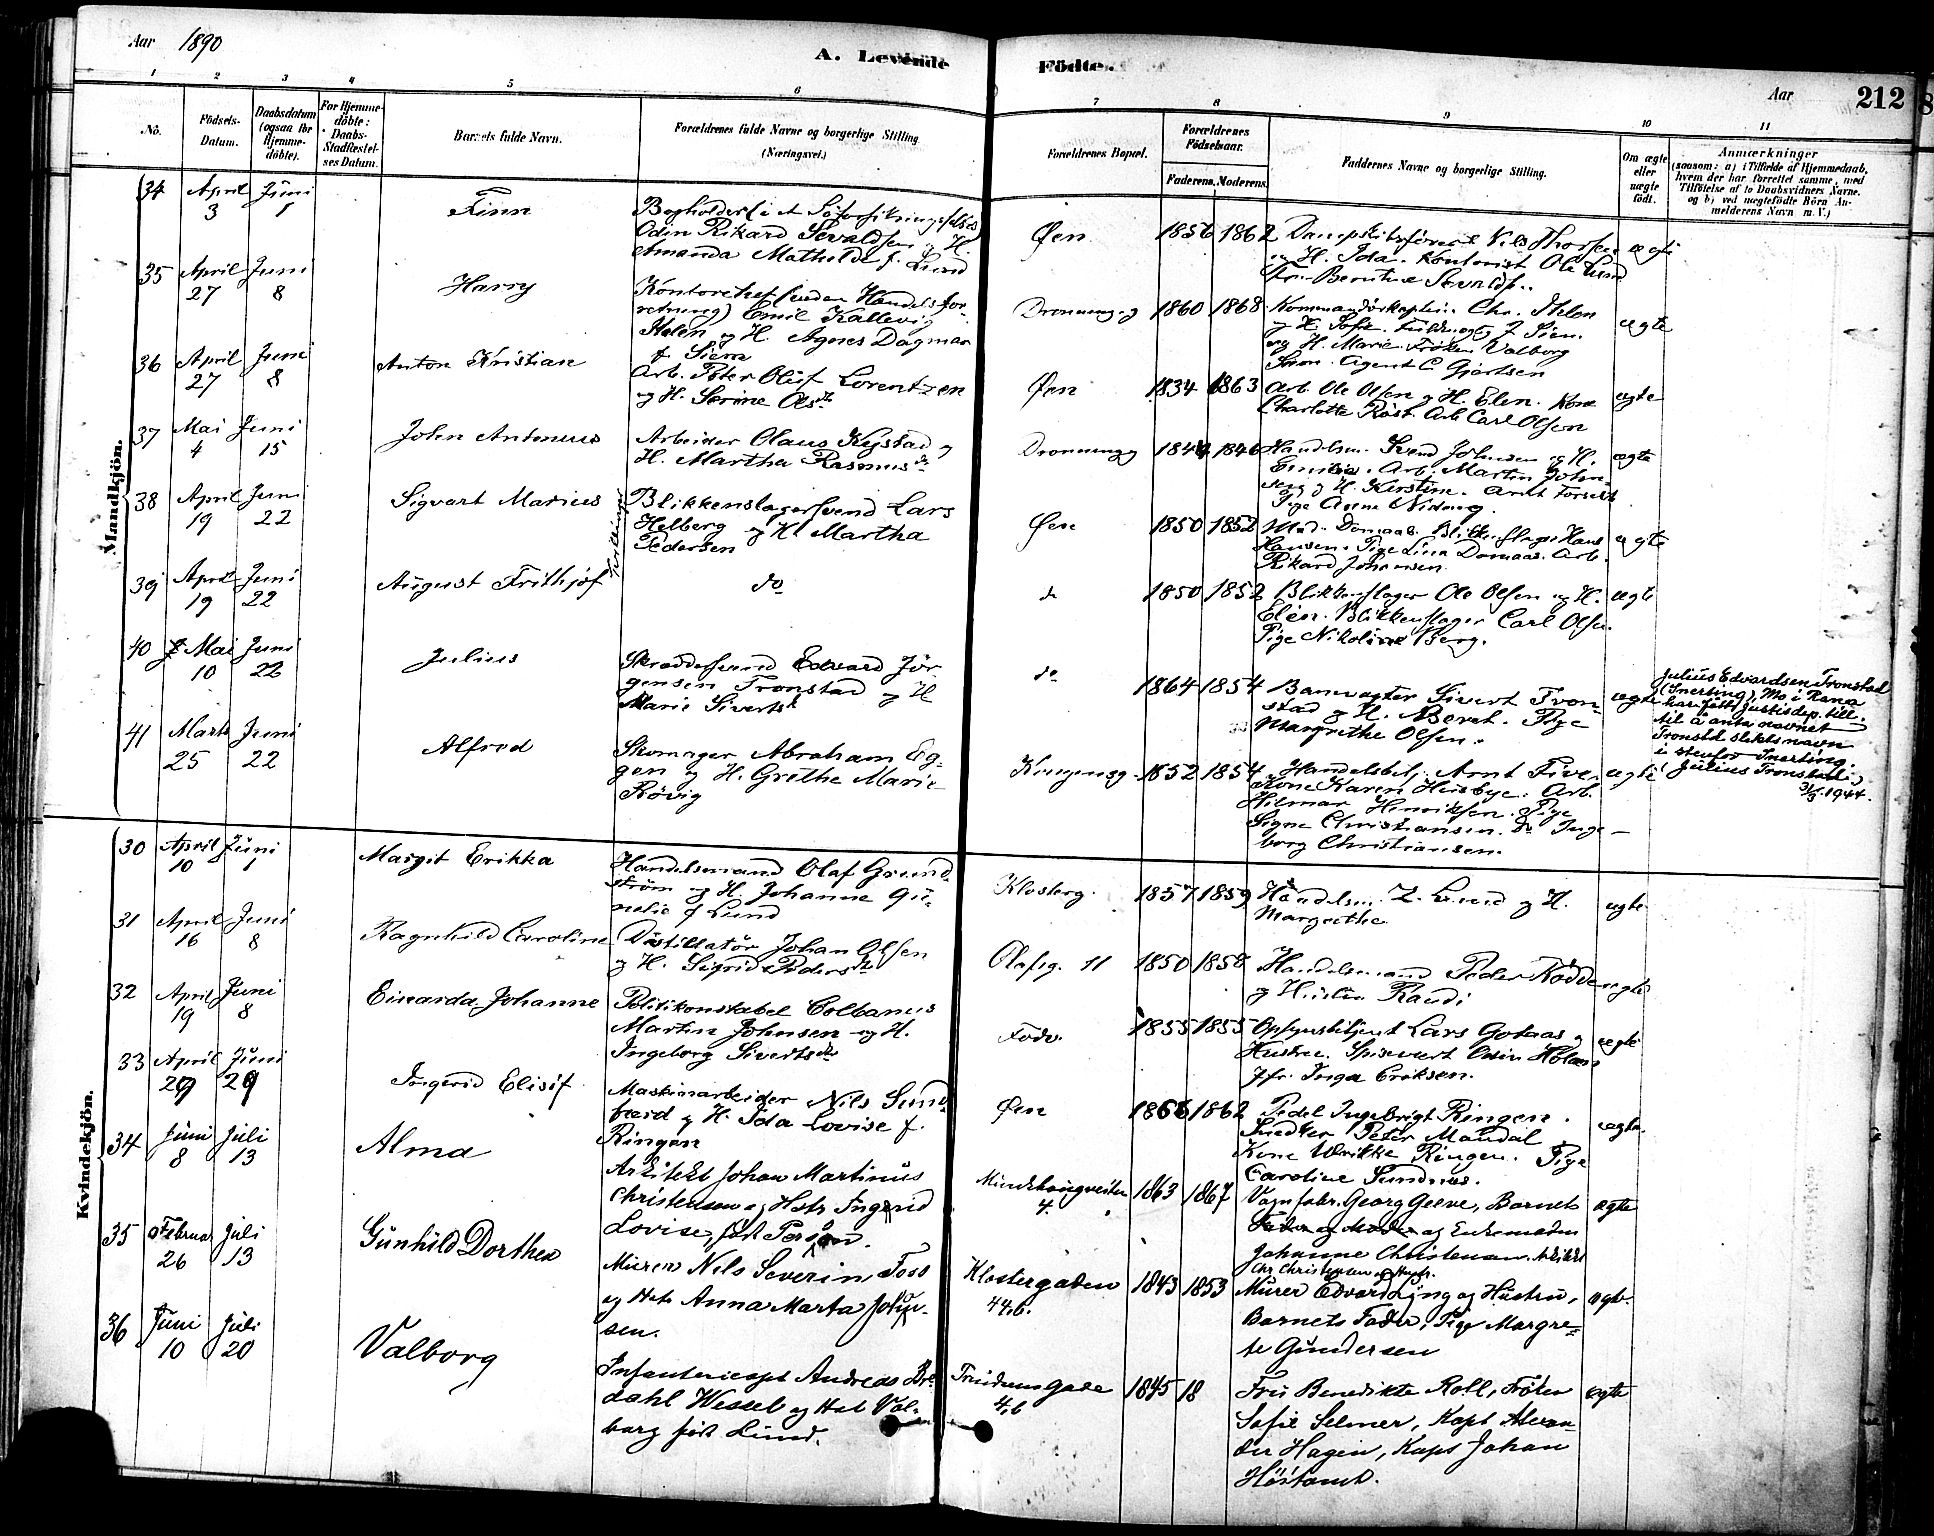 Aar 1890
A. Levende Födte.
Aar 212
1 2 3 4 5 6 7 8 9 10 11
No.
Födsels-Datum.
Daabsdatum (ogsaa for Hjemme-döbte).
For Hjemme-döbte: Daabs-Stadfæstel-ses Datum.
Barnets fulde Navn.
Forældrenes fulde Navne og borgerlige Stilling
(Næringsvei.)
Forældrenes Bopæl.
Forældrenes Födselsaar.
Faderens. Moderens.
Faddernes Navne og borgerlige Stilling.
Om ægte eller uægte födt.
Anmærkninger
(saasom: a) i Tilfælde af Hjemmedaab,
hvem der har forrettet samme, med
Tilföielse af to Daabsvidners Navne.
og b) ved uægtefödte Börn An-
melderens Navn m. V.)
Mandkjön.
34 April 3 Juni 1 Finn
Odin Rikard Sevaldsen og H.
Amanda Mathilde f. Lund
Øen 1856 1862 Dampskibsförer Nils Thorsen
og H. Ida. Kontorist Ole Lund
ægte
35 April 27 Juni 8 Harry
Kontorchef (uden Handelsfor-
retning) Emil Kallevig
Holen og H. Agnes Dagmar
f. Siem
Dronningg 1860 1868 Kommandörkaptein Chr.
og H. Marie. Fröken Valborg
Siem. Agent C Gjertsen
ægte
36 April 27 Juni 8 Anton Kristian
Arb. Peter Oluf Lorentzen
og H. Serine Olsdr
Øen 1834 1863 Arb. Ole Olsen og H. Elen. Kone
Charlotte Röst. Arb Carl Olsen
ægte
37 Mai 4 Juni 15 John Antonius
Arbeider Olaus Kystad og
H. Martha Rasmusdr
Dronningg 1844 1846 Handelsm. Svend Johnsen og H.
Emilie. Arb. Martin John-
sen og H. Kerstine.
Pige Anne
ægte
38 April 19 Juni 22 Sigvart Marius
Tvillinger
Blikkenslagersvend Lars
Helberg og H Martha
Pedersen
Øen 1850 1852 Mad. Domaas. Blikkenslager Hans
Hansen. Pige Lina Domaas. Arb.
Rikard Johansen
ægte
39 April 19 Juni 22 August Frithjof
do
do 1850 1852 Blikkenslager Ole Olsen og H.
Elen. Blikkenslager Carl Olsen.
Pige Nikoline Berg.
ægte
40 Mai 10 Juni 22 Julius
Skræddersvend Edvard Jör-
gensen Tronstad og H
Marie Sivertsdr
do 1864 1854 Banevogter Sivert Tron-
stad og H. Beret. Pige
Margrethe Olsen.
ægte
Julius Edvardsen Tronstad
(Snerting), Mo i Rana
har fått Justisdep. till.
til å anta navnet
Tronstad slektsnavn
i stedet Snerting.
(Julius Tronstad)
31/3 1944.
41 Marts 25 Juni 22 Alfred
Skomager Abraham Eg-
gen og H. Grethe Marie
Rövig
Kongensg. 1852 1854 Handelsbetj. Arnt Five.
Kone Karen Husbye. Arb.
Hilmar Henriksen. Pige
Signe Christiansen. do Inge-
borg Christiansen.
ægte
Kvindekjön.
30 April 10 Juni 1 Margit Erikka
Handelsmand Olaf Grund-
ström og H. Johanne Gu-
nelie f Lund
Klosterg. 1857 1859 Handelsm. L. Lund og H.
Margrethe
ægte
31 April 16 Juni 8 Ragnhild Caroline
Destillatör Johan Olsen
og H. Sigrid Pedersdr
Olafsg. 11 1850 1858 Handelsmand Peder Rödde
og Hustru Randi
ægte
32 April 19 Juni 8 Einarda Johanne
Politikonstabel Colbanus
Martin Johnsen og H.
Ingeborg Sivertsdr
1855 1855 Opsynsbetjent Lars Gotaas og
Hustru. Spisevert Odin
Jfr. Inga Eriksen.
ægte
33 April 29 Juni 29 Ingerid Elisif
Maskinarbeider Nils Sund-
og H. Ida Lovise f.
Ringen
Øen 1866 1862 Pedel Ingebrigt Ringen.
Snedker Peter Mandal
Kone Ulrikke Ringen. Pige
Caroline Sundnes.
ægte
34 Juni 8 Juli 13 Alma
Arkitekt Johan Martinus
Christensen og Hstr Ingerid
Lovise, född Person.
4. 1863 1867 Vognfabr. Georg Geeve, Barnets
Fader og Moder og Enkemadam
Johanne Christensen. Arkitekt
Chr Christensen og Hustr.
ægte
35 Februar 26 Juli 13 Gunhild Dorthea
Murer Nils Severin Foss
og Hst Anna Marta John-
sen.
Klostergaden 44,b. 1843 1853 Murer Edvard Lyng og Hustru,
Barnets Fader, Pige Margre-
te Gundersen
ægte.
36 Juni 10 Juli 20 Valborg
Infantericapt Andreas Bre-
dahl Wessel og Hst Val-
borg född Lund.
4,b 1845 18 Fru Benedikte Roll, Fröken
Sofie Selmer, Kapt Alexan-
der Hagen, Kapt Johan
ægte